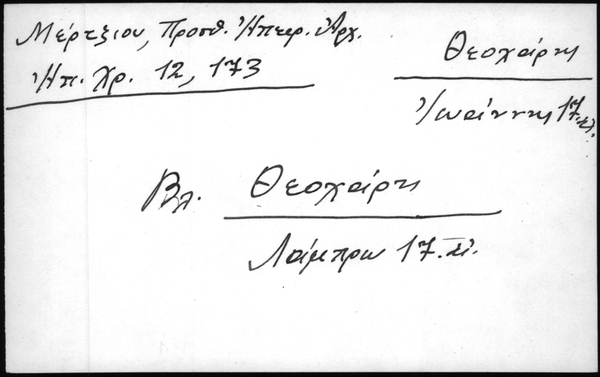 Μέρτζιου, Προσθ. Ἠπειρ. Ἀρχ.
Ἠπ. Χρ. 12, 173
Θεοχάρης
Ἰωάννης 17. αἰ.
Βλ. Θεοχάρης
Λάμπρω 17. αἰ.